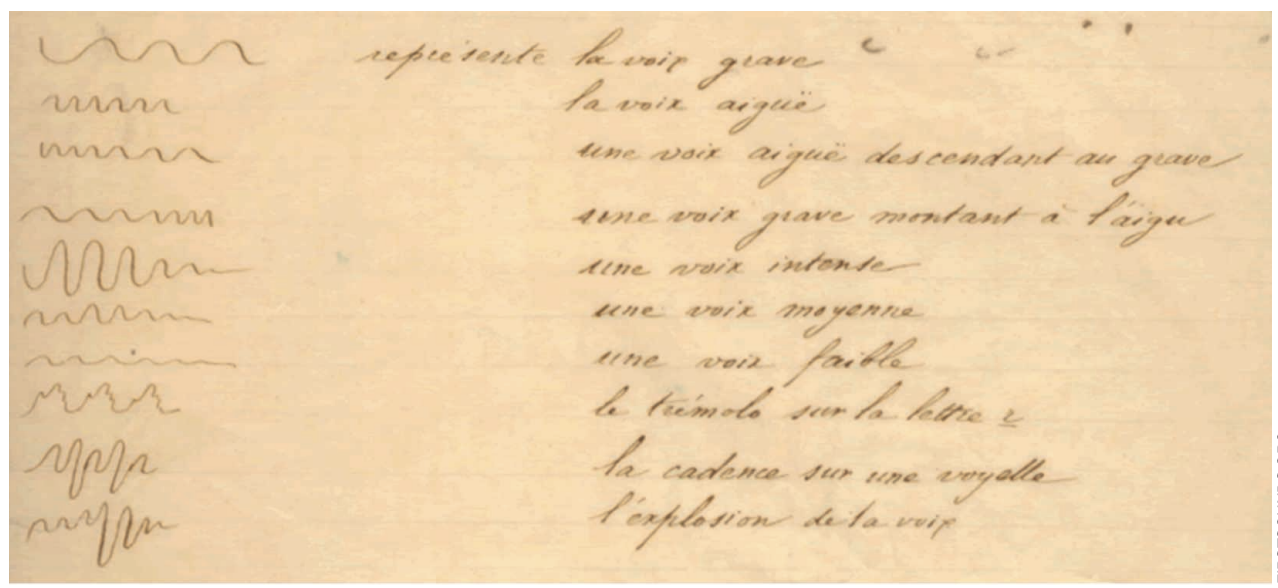 représente la voix grave
la voix aiguë
une voix aiguë descendant au grave
une voix grave montant à l'äigu
une voix intense
une voix moyenne
une voix faible
le trémolo sur la lettre r
la cadence sur une voyelle
l'explosion de la voix